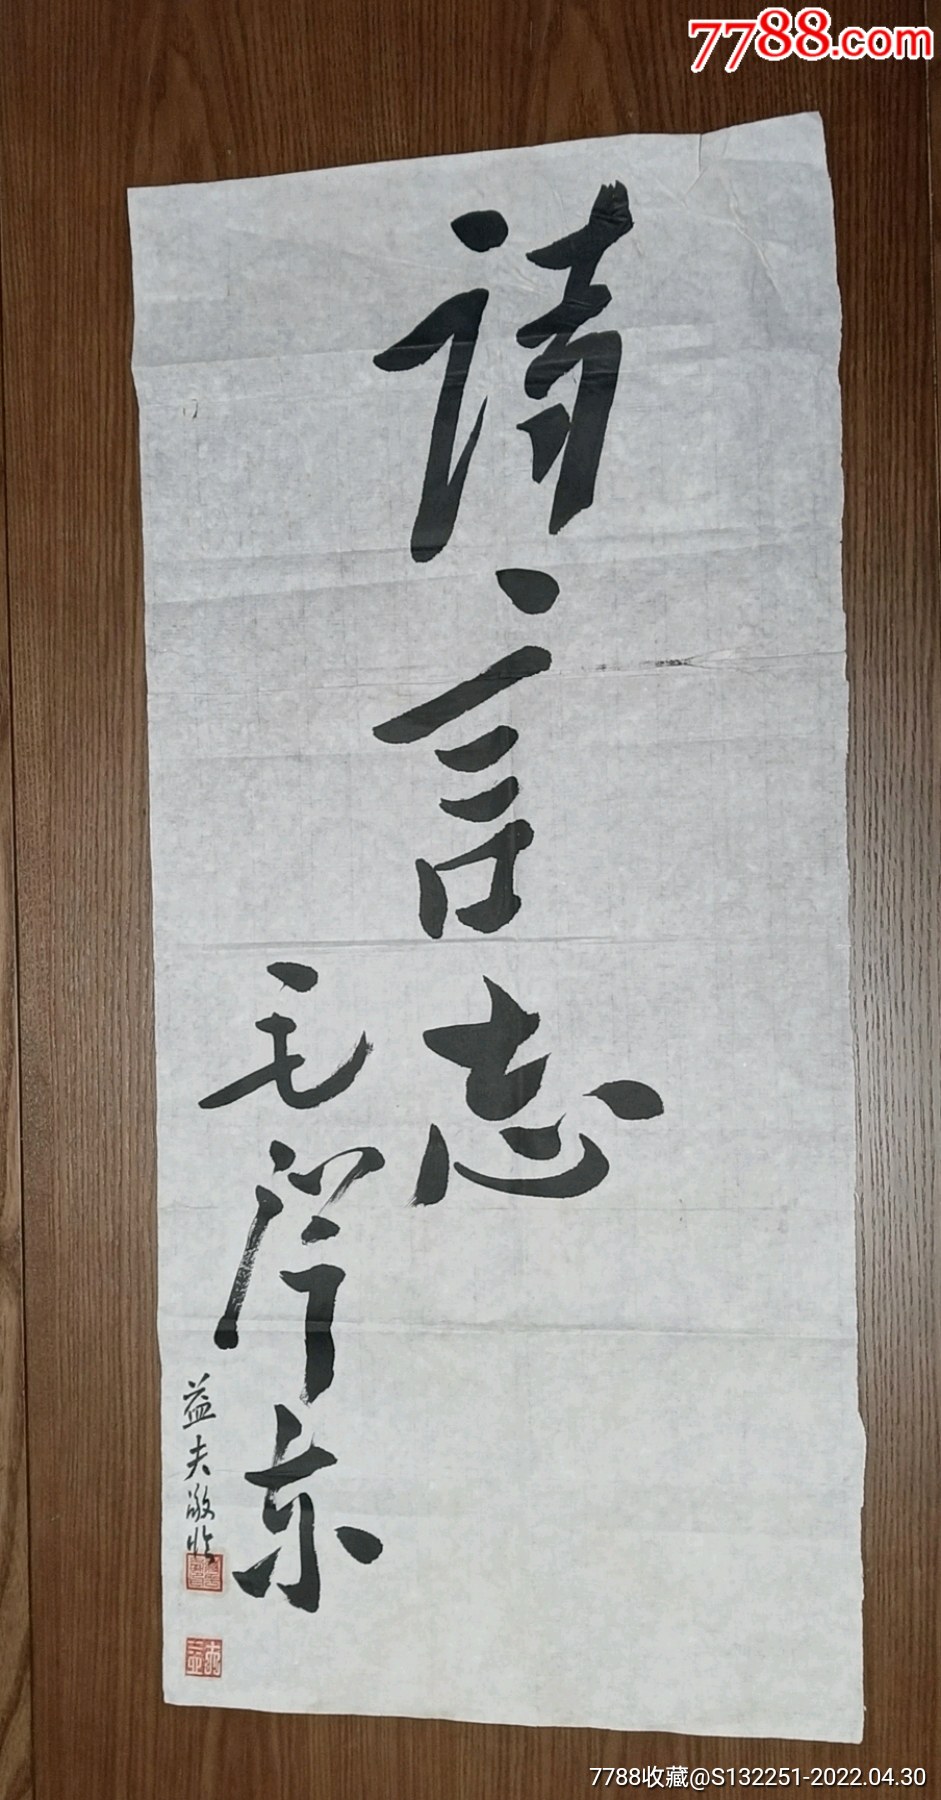 7788.com
诗言志
毛泽东
益夫敬临
7788收藏@S132251-2022.04.30